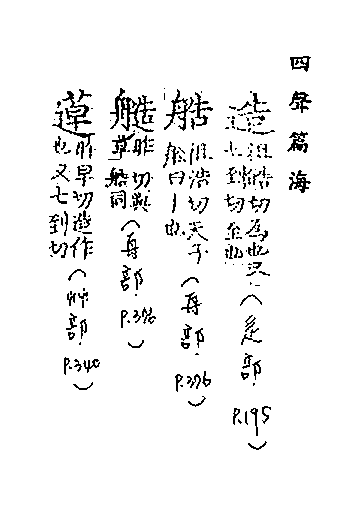 四聲篇海
造 徂皓切為也又
七到切至也 (辵部. P.195)
艁 徂浩切天子
船曰丨也 (舟部. P.376)
艁 昨切與
草船同 (舟部. P.376)
草 昨早切造作
也又七到切 (艸部. P.340)